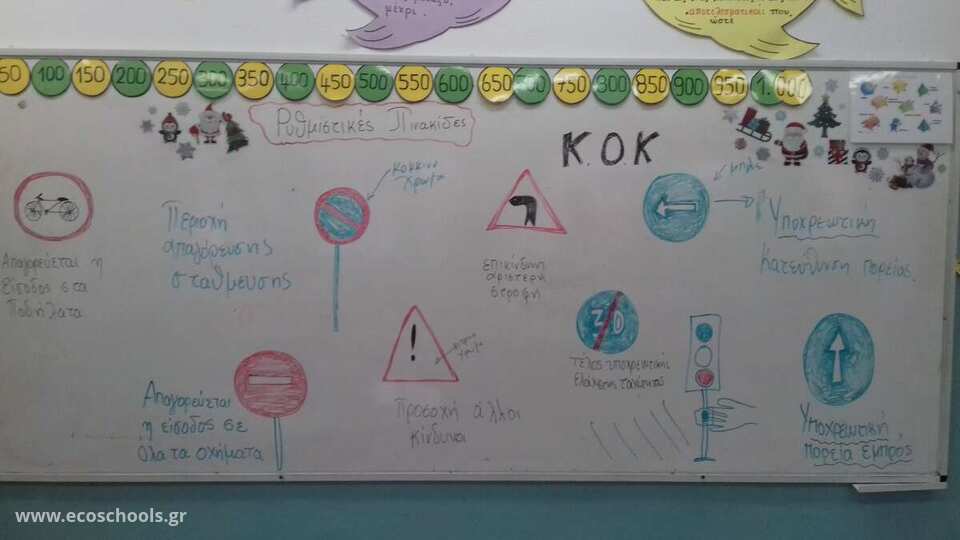 μέχρι.
αποτελεσματικοί που,
ώστε
50 100 150 200 250 300 350 400 450 500 550 600 650 700 750 800 850 900 950 1.000
Ρυθμιστικές Πινακίδες
Κ.Ο.Κ
κόκκινο
χρώμα
μπλε
Απαγορεύεται η
είσοδος στα
Ποδήλατα
Περιοχή
απαγόρευσης
στάθμευσης
επικίνδυνη
αριστερή
στροφή
Υποχρεωτική
Κατεύθυνση πορείας.
30
Τέλος υποχρεωτικής
ελάχιστης ταχύτητας
!
χρώμα
Προσοχή άλλοι
κίνδυνοι
Απαγορεύεται
η είσοδος σε
όλα τα οχήματα
Υποχρεωτική
πορεία εμπρός
www.ecoschools.gr